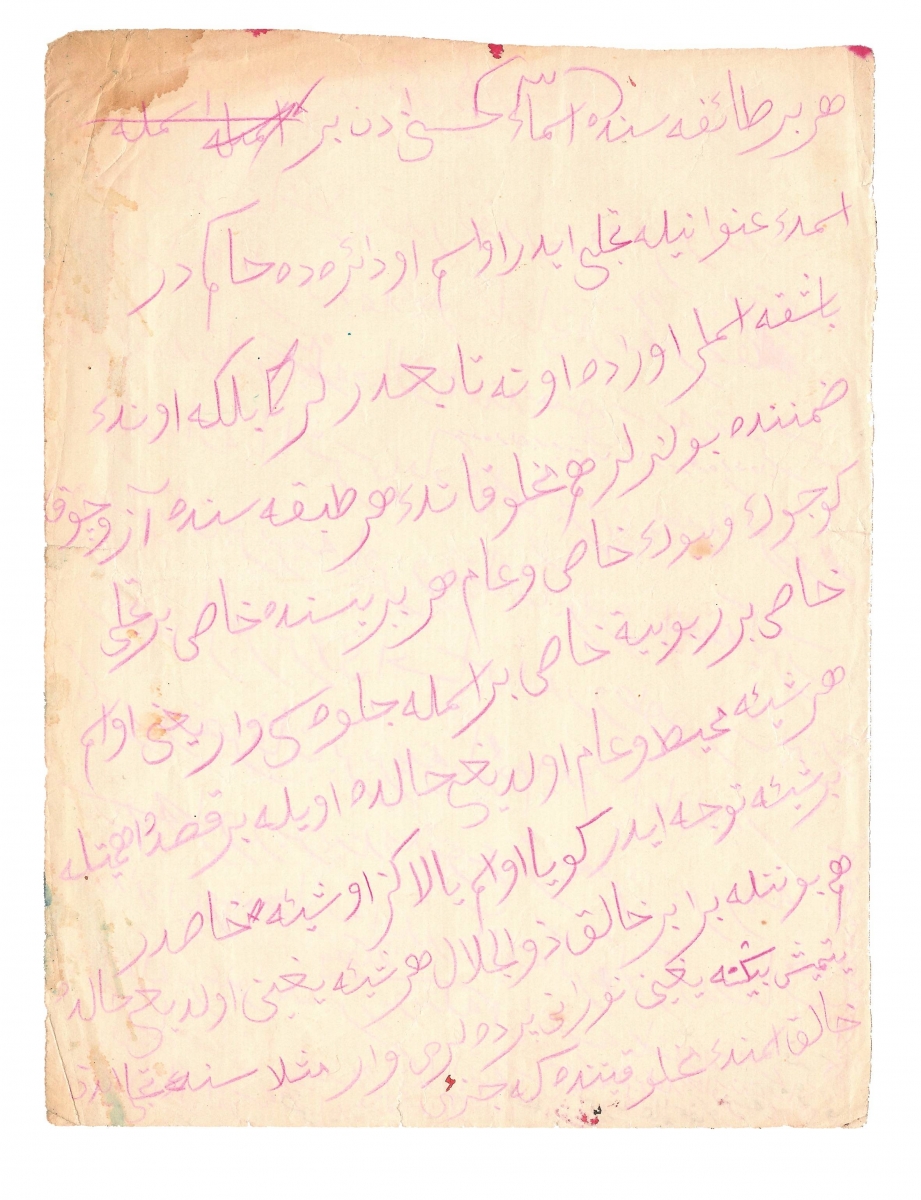 هر بر طائفه سنده اسماء حسنى دن بر اسمله اسمله
اسمك عنوانيله تجلى ايدر او اسم او دائره ده حاكمدر
باشقه اسملر اوراده اوڭه تابعدرلر بلكه اونك
ضمننده بولنرلر هم مخلوقاتك هر طبقه سنده آز و چوق
كوچوك و بيوك خاص و عام هر بريسنده خاص بر تجلى
خاص بر ربوبيه خاص بر اسمله جلوه سى وار يعنى او اسم
هر شيئه محيط و عام اولديغى حالده اويله بر قصد و اهميتله
بر شيئه توجه ايدر كويا او اسم يالاڭز او شيئه خاصدر
هم بوننله برابر خالق ذو الجلال هر شيئه يقين اولديغى حالده
يتميش بيڭه يقين نورانى پرده لرى وار مثلا سڭا تجلى ايدن
خالق اسمنك مخلوقيتنده كه جزئى